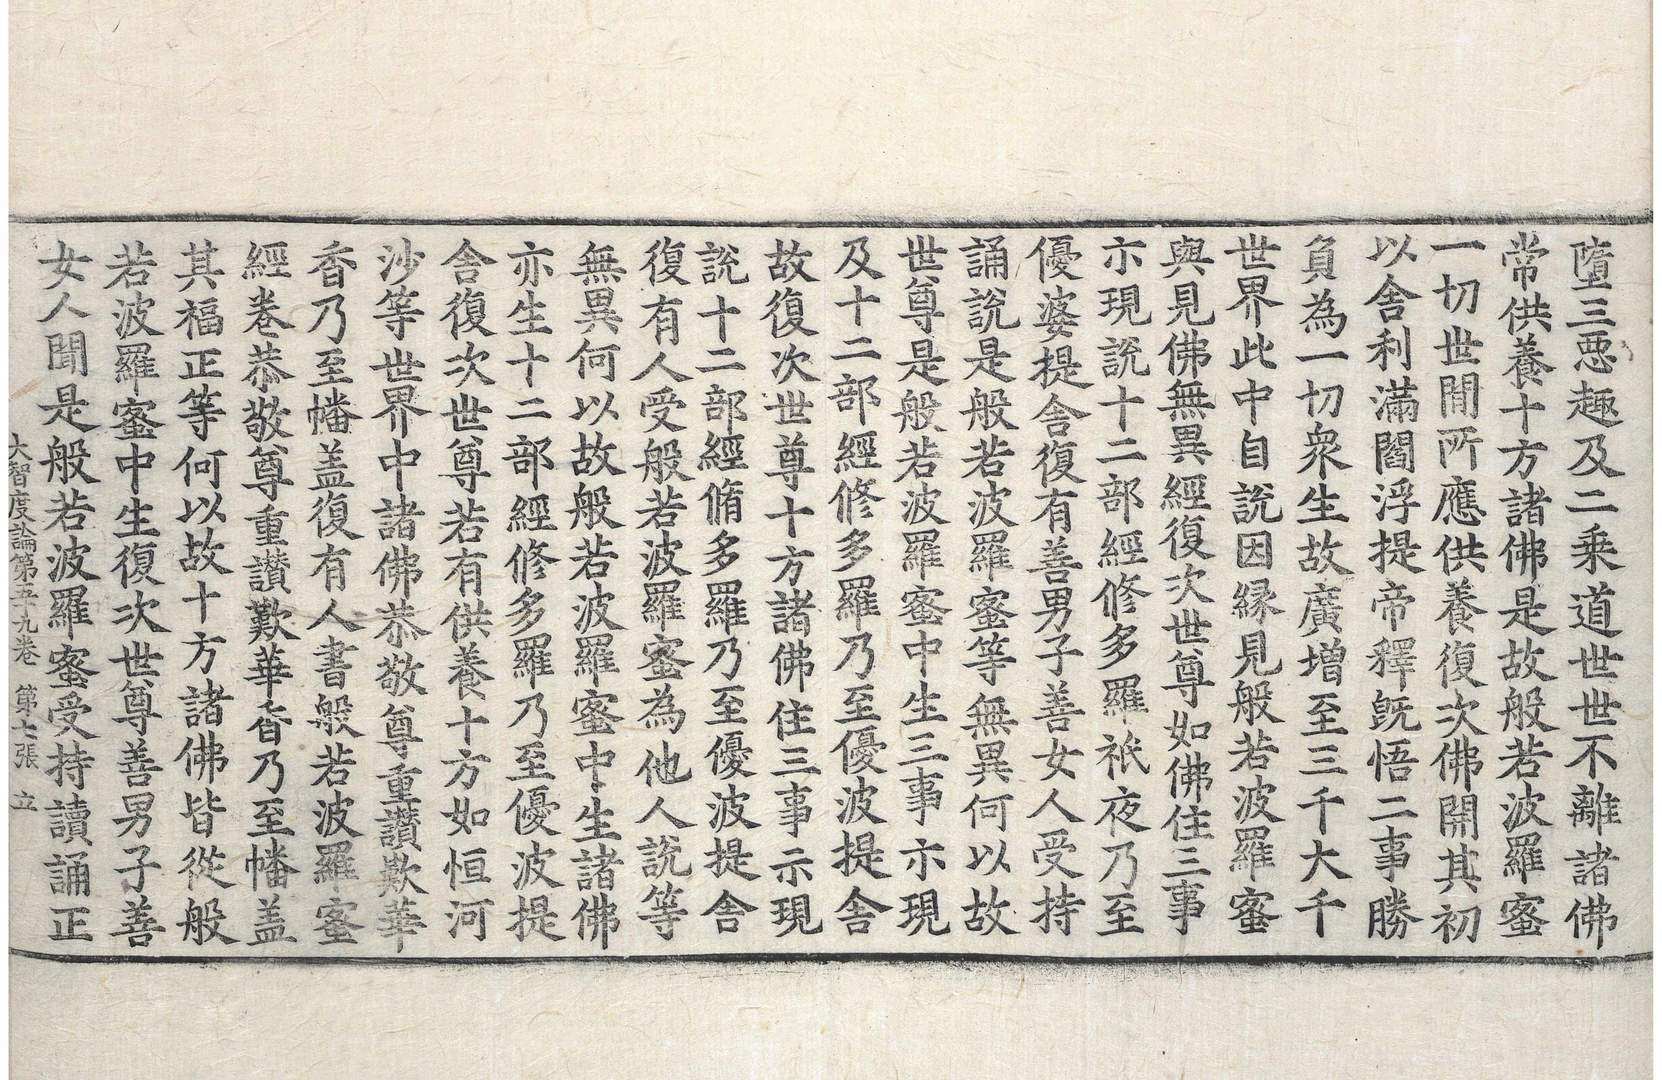 墮三惡趣及二乗道世世不離諸佛
常供養十方諸佛是故般若波羅蜜
一切世間所應供養復次佛開其初
以舍利滿閻浮提帝釋既悟二事勝
負為一切衆生故廣增至三千大千
世界此中自說因縁見般若波羅蜜
與見佛無異經復次世尊如佛住三事
示現說十二部經修多羅祇夜乃至
優婆提舍復有善男子善女人受持
誦說是般若波羅蜜等無異何以故
世尊是般若波羅蜜中生三事示現
及十二部經修多羅乃至優波提舍
故復次世尊十方諸佛住三事示現
說十二部經脩多羅乃至優波提舍
復有人受般若波羅蜜為他人說等
無異何以故般若波羅蜜中生諸佛
亦生十二部經修多羅乃至優波提
舍復次世尊若有供養十方如恒河
沙等世界中諸佛恭敬尊重讚歎華
香乃至幡盖復有人書般若波羅蜜
經卷恭敬尊重讚歎華香乃至幡盖
其福正等何以故十方諸佛皆從般
若波羅蜜中生復次世尊善男子善
女人聞是般若波羅蜜受持讀誦正
大智度論第五十九卷 第七張 立